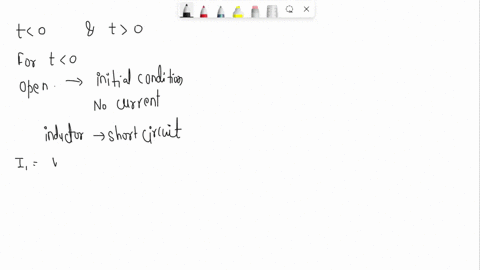 t<0 & t>0
For t<0
open. → initial condition
No current
inductor → short circuit
I₁ =